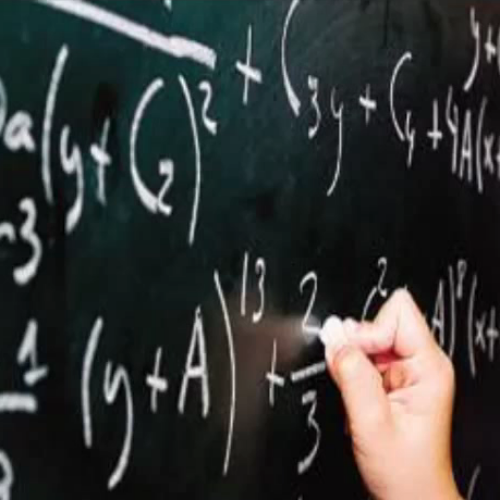 a(y+C₂)² + C₃y + C₄ + 4A(x+
-3
1 (y+A)¹³ + 2/3 (² A)⁸(x+